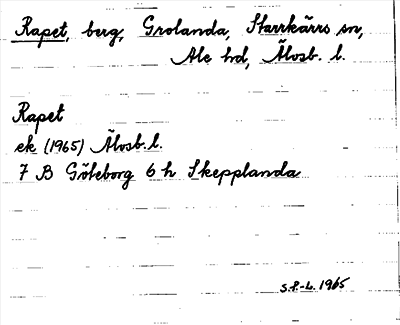 Rapet, berg, Grolanda, Starrkärrs sn,
Ale hd, Älvsb. l.
Rapet
ek (1965) Älvsb. l.
7 B Göteborg 6 h Skepplanda
S.F.-L. 1965